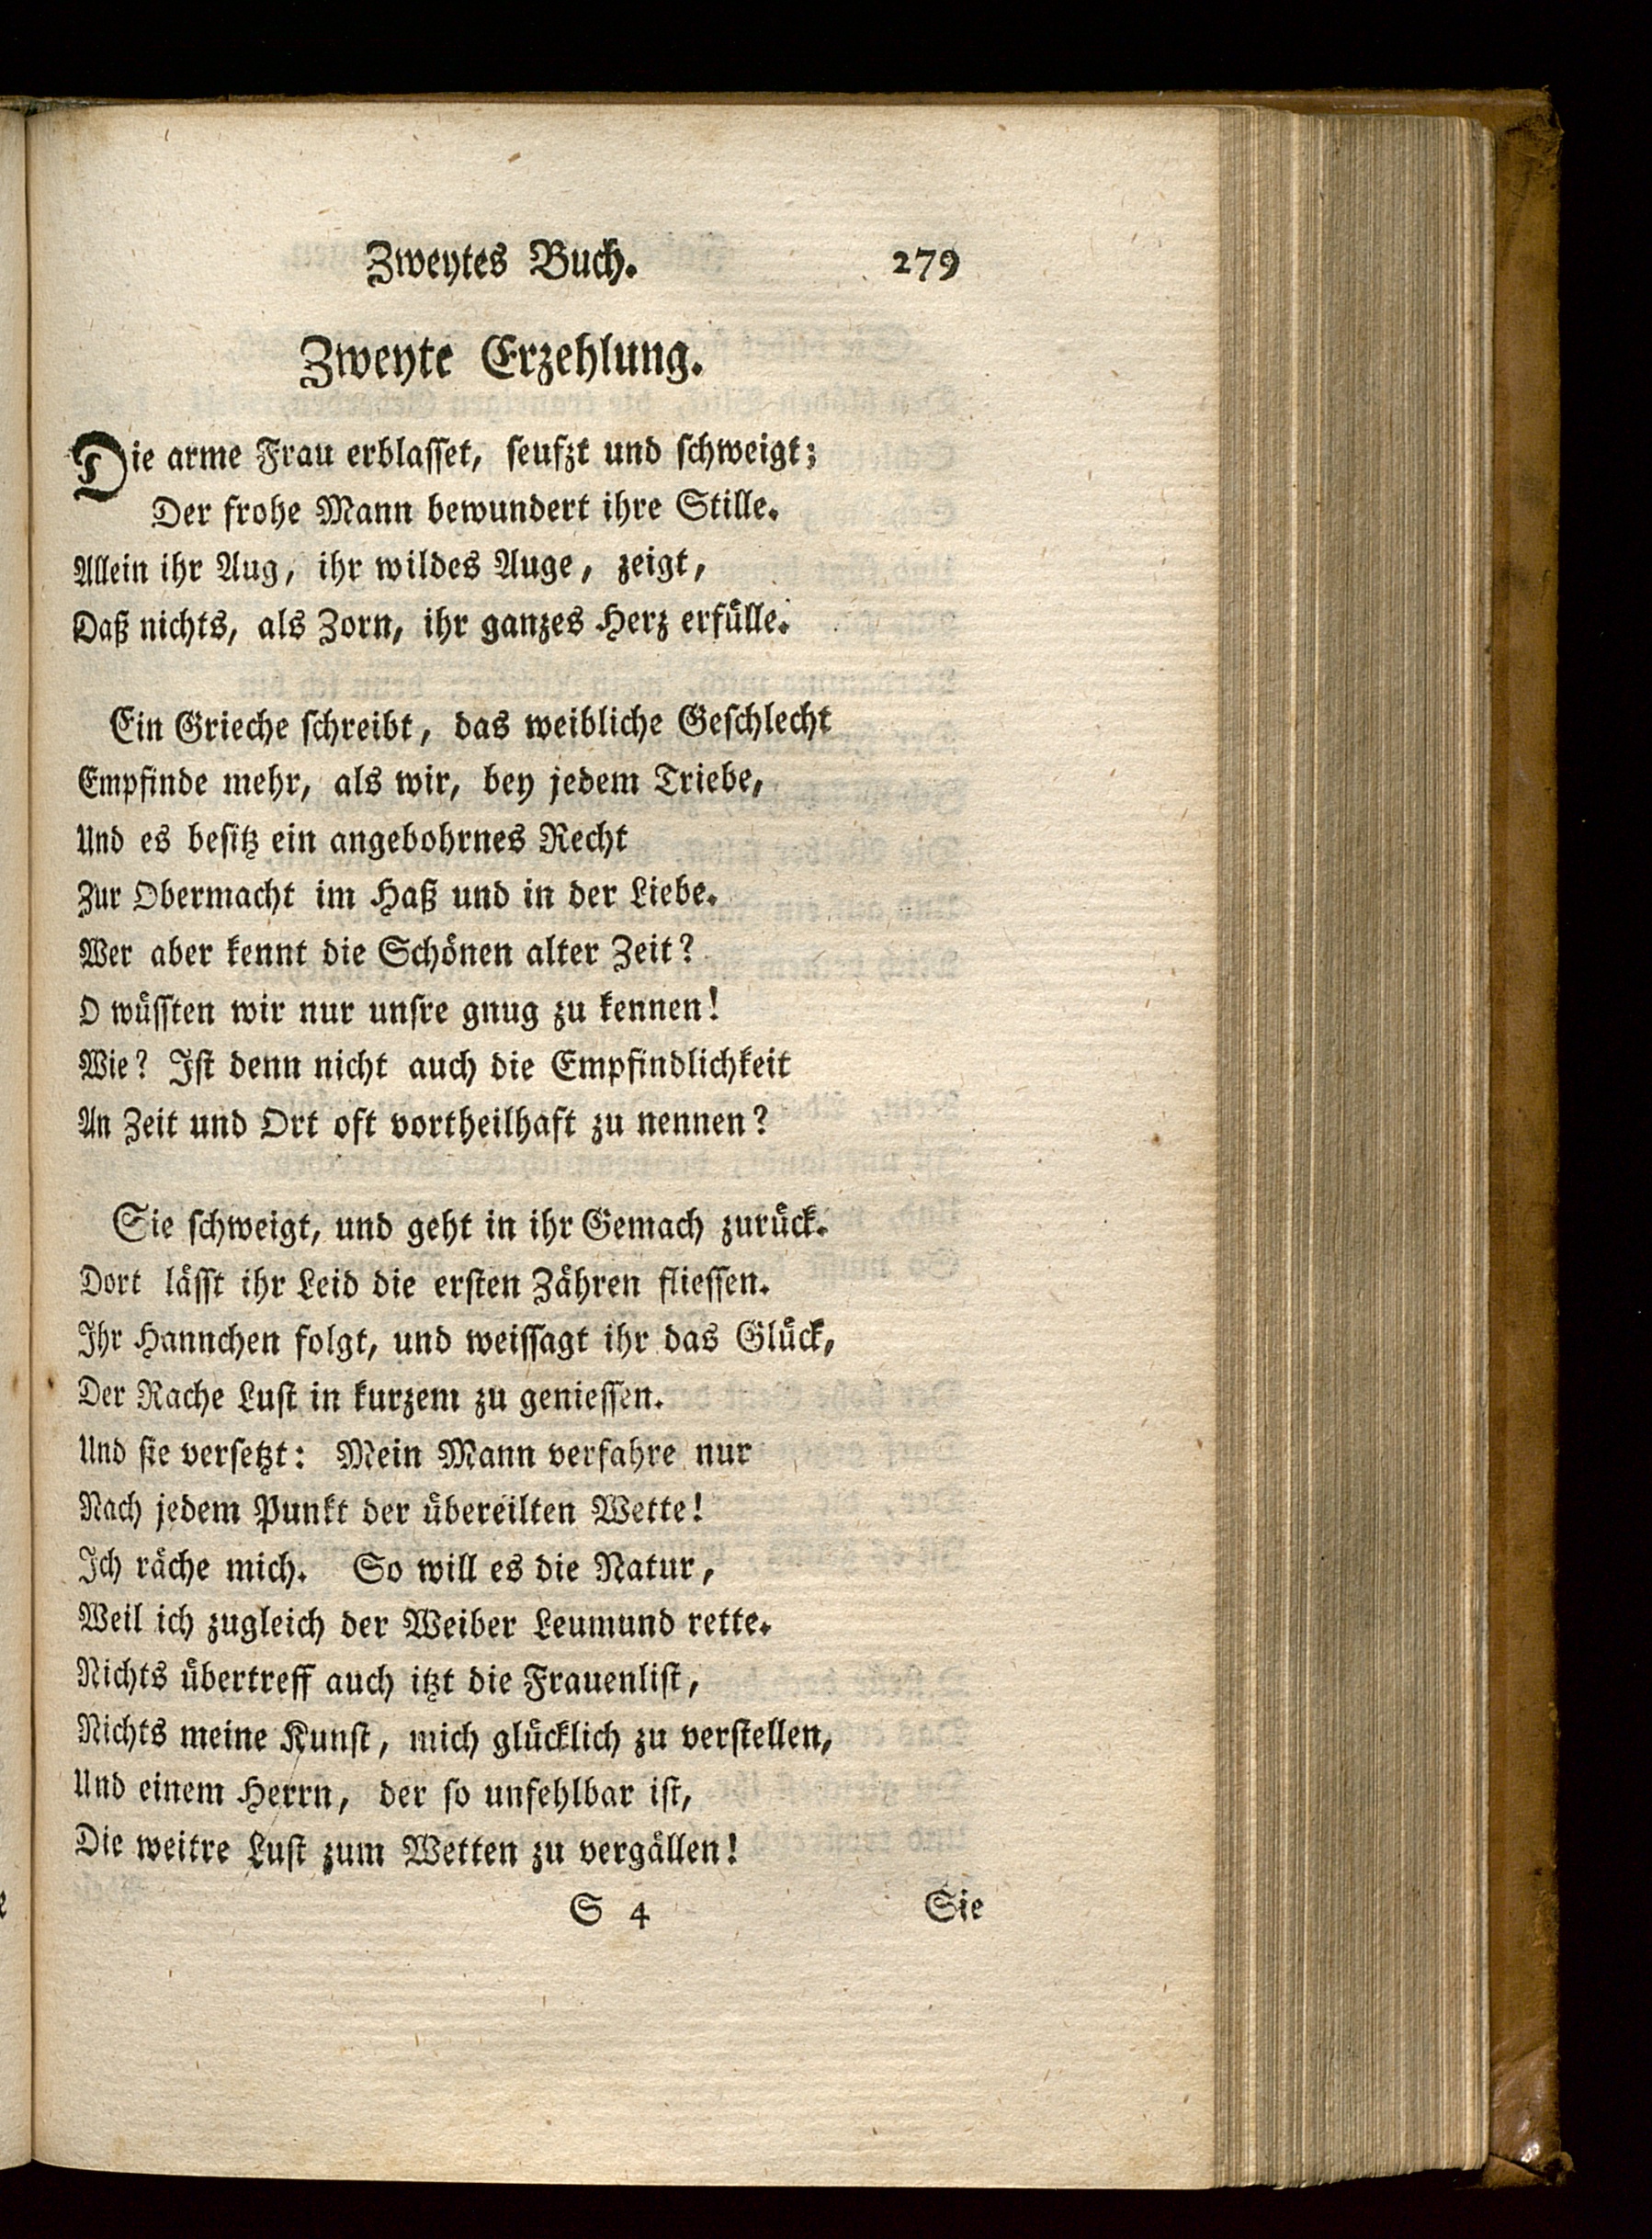 Zweytes Buch. 279
Zweyte Erzehlung.
Die arme Frau erblasset, seufzt und schweigt;
Der frohe Mann bewundert ihre Stille.
Allein ihr Aug, ihr wildes Auge, zeigt,
Daß nichts, als Zorn, ihr ganzes Herz erfülle.
Ein Grieche schreibt, das weibliche Geschlecht
Empfinde mehr, als wir, bey jedem Triebe,
Und es besitz ein angebohrnes Recht
Zur Obermacht im Haß und in der Liebe.
Wer aber kennt die Schönen alter Zeit?
O wüssten wir nur unsre gnug zu kennen!
Wie? Ist denn nicht auch die Empfindlichkeit
An Zeit und Ort oft vortheilhaft zu nennen?
Sie schweigt, und geht in ihr Gemach zurück.
Dort lässt ihr Leid die ersten Zähren fliessen.
Ihr Hannchen folgt, und weissagt ihr das Glück,
Der Rache Lust in kurzem zu geniessen.
Und sie versetzt: Mein Mann verfahre nur
Nach jedem Punkt der übereilten Wette!
Ich räche mich. So will es die Natur,
Weil ich zugleich der Weiber Leumund rette.
Nichts übertreff auch itzt die Frauenlist,
Nichts meine Kunst, mich glücklich zu verstellen,
Und einem Herrn, der so unfehlbar ist,
Die weitre Lust zum Wetten zu vergällen!
S 4 Sie